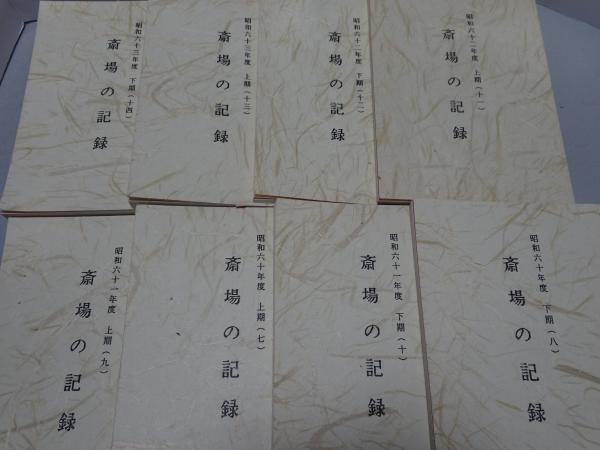 昭和六十三年度 下期(十四)
斎場の記録
昭和六十三年度 上期(十三)
斎場の記録
昭和六十二年度 下期(十二)
斎場の記録
昭和六十二年度 上期(十一)
斎場の記録
昭和六十一年度 上期(九)
斎場の記録
昭和六十年度 上期(七)
斎場の記録
昭和六十一年度 下期(十)
斎場の記録
昭和六十年度 下期(八)
斎場の記録